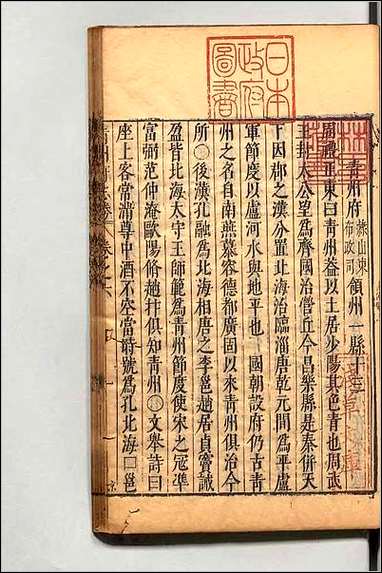 日本
政府
圖書
青州府 隸山東布政司 領州一縣十三
周禮正東曰青州蓋以土居少陽其色青也周武
王封太公望為齊國治營丘今昌樂縣是秦併天
下因郡之漢分置北海治臨淄唐乾元間為平盧
軍節度以盧河水與地平也 國朝設府仍古青
州之名自南燕慕容德都廣固以來青州俱治今
所〇後漢孔融為北海相唐之李邕趙居貞竇誠
盈皆比海太守王師範為青州節度使宋之寇準
富弼范仲淹歐陽脩趙抃俱知青州〇文舉詩曰
座上客常滿尊中酒不空當時號為孔北海〇邕
卷之六